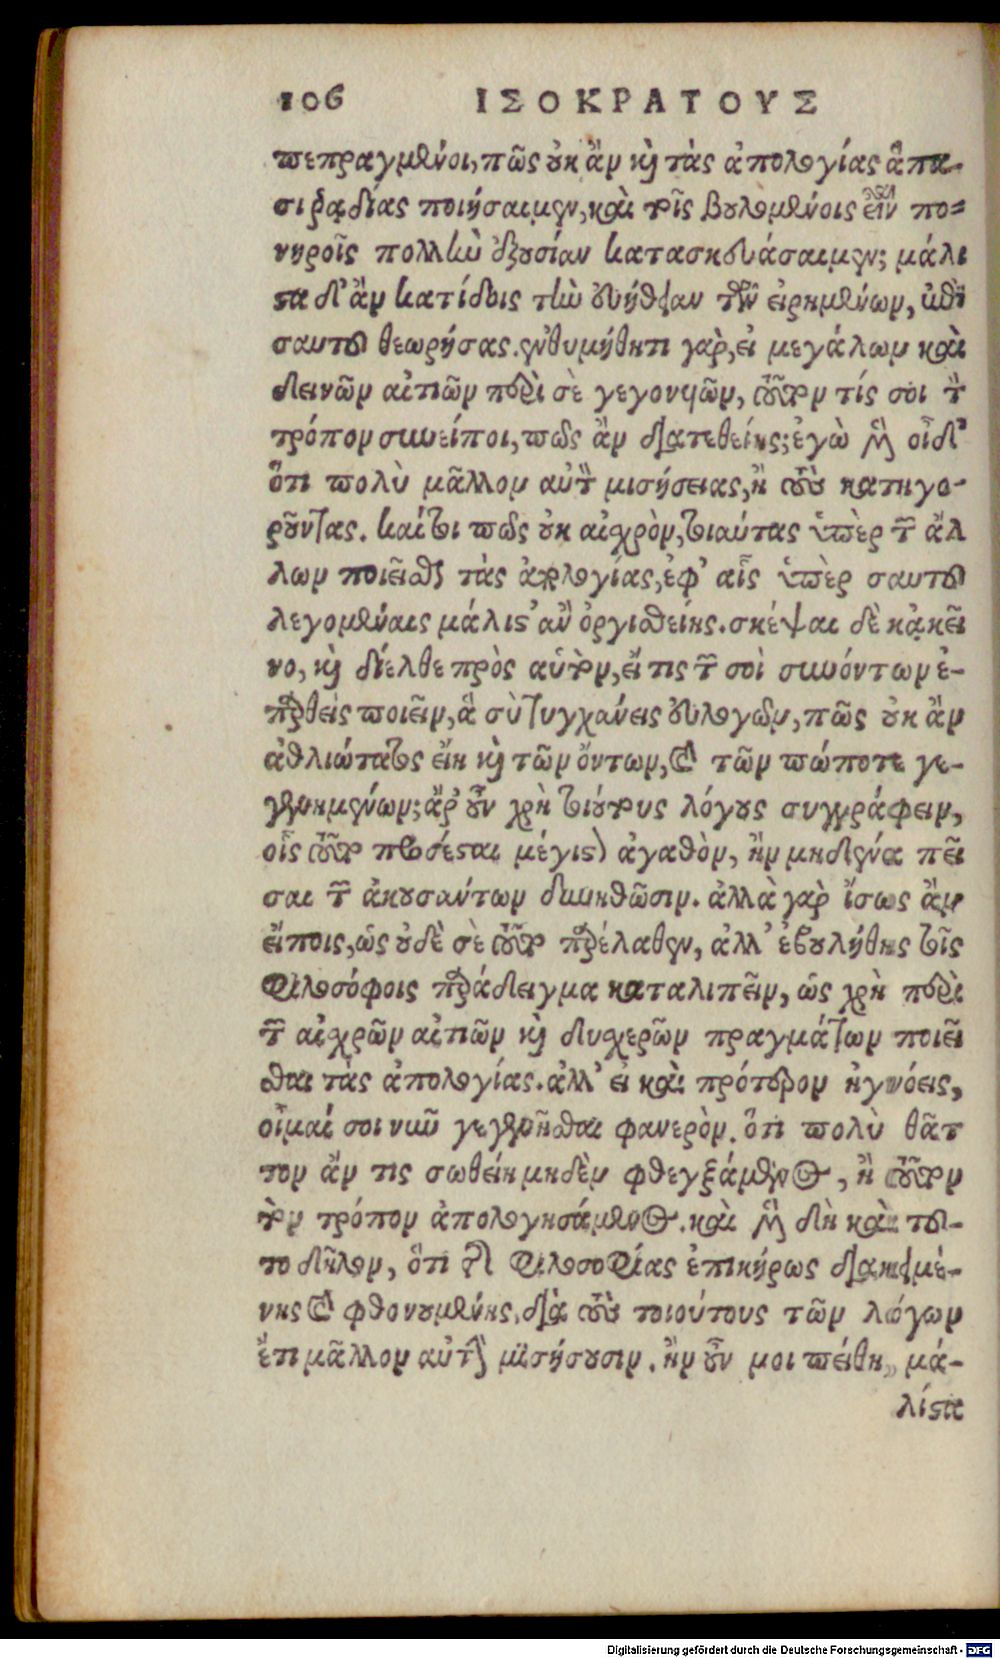 106 ΙΣΟΚΡΑΤΟΥΣ
πεπραγμένοι, πῶς οὐκ ἂν καὶ τὰς ἀπολογίας ἅπα-
σι ῥᾳδίας ποιήσαιμεν, καὶ τοῖς βουλομένοις εἶναι πο-
νηροῖς πολλὴν ἐξουσίαν κατασκευάσαιμεν; μάλι
στα δ' ἂν κατίδοις τὴν εὐήθειαν τῶν εἰρημένων, ἐπὶ
σαυτοῦ θεωρήσας. ἐνθυμήθητι γὰρ, εἰ μεγάλων καὶ
δεινῶν αἰτιῶν περὶ σὲ γεγονυιῶν, τοῦτόν τίς σοι τὸν
τρόπον συνείποι, πῶς ἂν διατεθείης; ἐγὼ μὲν οἶδ'
ὅτι πολὺ μᾶλλον αὐτὸν μισήσειας, ἢ τοὺς κατηγο-
ροῦντας. καίτοι πῶς οὐκ αἰσχρὸν, τοιαύτας ὑπὲρ τῶν ἄλ
λων ποιεῖσθαι τὰς ἀπολογίας, ἐφ' αἷς ὑπὲρ σαυτοῦ
λεγομέναις μάλιστ' ἂν ὀργισθείης. σκέψαι δὲ κᾀκεῖ
νο, καὶ δίελθε πρὸς αὑτὸν, εἴ τις τῶν σοὶ συνόντων ἐ-
παρθεὶς ποιεῖν, ἃ σὺ τυγχάνεις εὐλογῶν, πῶς οὐκ ἂν
ἀθλιώτατος εἴη καὶ τῶν ὄντων, καὶ τῶν πώποτε γε-
γενημένων; ἆρ' οὖν χρὴ τοιούτους λόγους συγγράφειν,
οἷς τοῦτο προσέσται μέγιστον ἀγαθὸν, ἢν μηδένα πεῖ
σαι τῶν ἀκουσάντων δυνηθῶσιν. ἀλλὰ γὰρ ἴσως ἂν
εἴποις, ὡς οὐδὲ σὲ τοῦτο παρέλαθεν, ἀλλ' ἐβουλήθης τοῖς
φιλοσόφοις παράδειγμα καταλιπεῖν, ὡς χρὴ περὶ
τῶν αἰσχρῶν αἰτιῶν καὶ δυσχερῶν πραγμάτων ποιεῖ
σθαι τὰς ἀπολογίας. ἀλλ' εἰ καὶ πρότερον ἠγνόεις,
οἶμαί σοι νῦν γεγενῆσθαι φανερὸν. ὅτι πολὺ θᾶτ
τον ἄν τις σωθείη μηδὲν φθεγξάμενος, ἢ τοῦτον
τὸν τρόπον ἀπολογησάμενος. καὶ μὲν δὴ καὶ τοῦ-
το δῆλον, ὅτι τῆς φιλοσοφίας ἐπικήρως διακειμέ-
νης καὶ φθονουμένης, διὰ τοὺς τοιούτους τῶν λόγων
ἔτι μᾶλλον αὐτὴν μισήσουσιν. ἢν οὖν μοι πείθῃ, μά-
λιστα
Digitalisierung gefördert durch die Deutsche Forschungsgemeinschaft - DFG